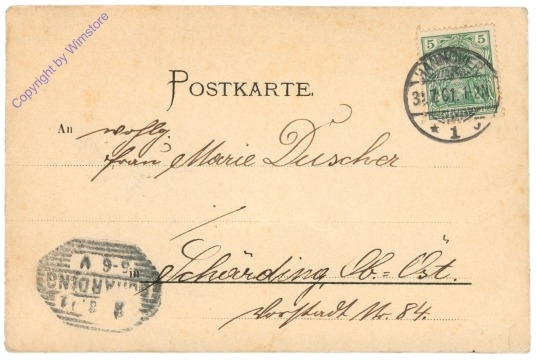 Copyright by Wimstore
POSTKARTE.
5 5
HANNOVER
1
An wohlg.
Frau Marie Duscher
in Schärding, Ob=Öst.
Vorstadt Nr. 84.
SCHÄRDING
5-6·V